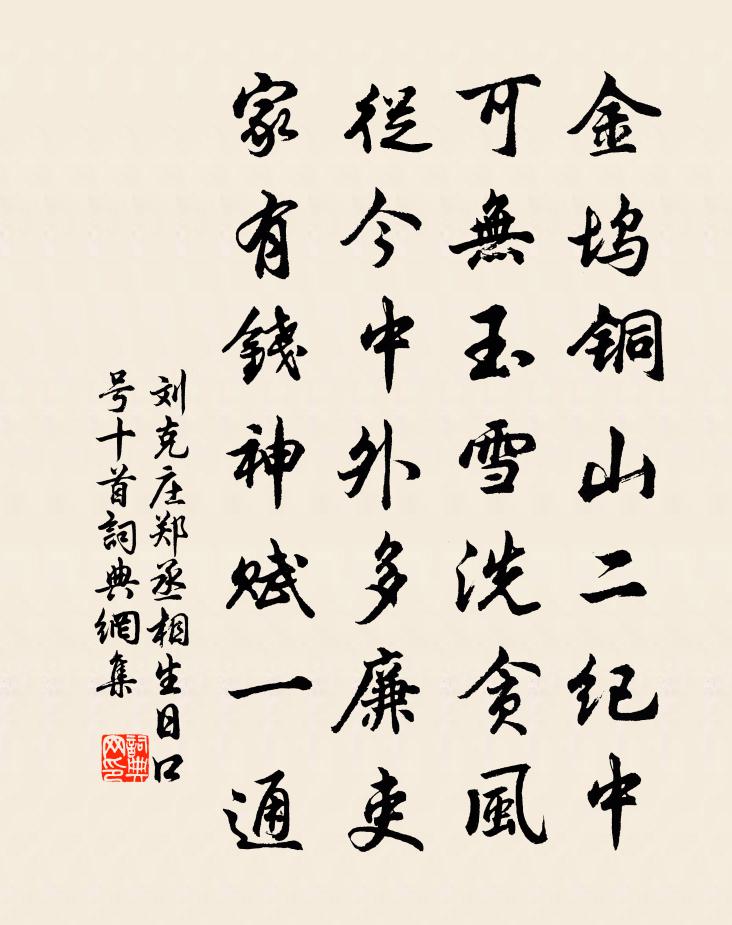 金坞铜山二纪中
可無玉雪洗贪風
從今中外多廉吏
家有錢神赋一通
刘克庄郑丞相生日口
号十首詞典網集
詞典网印